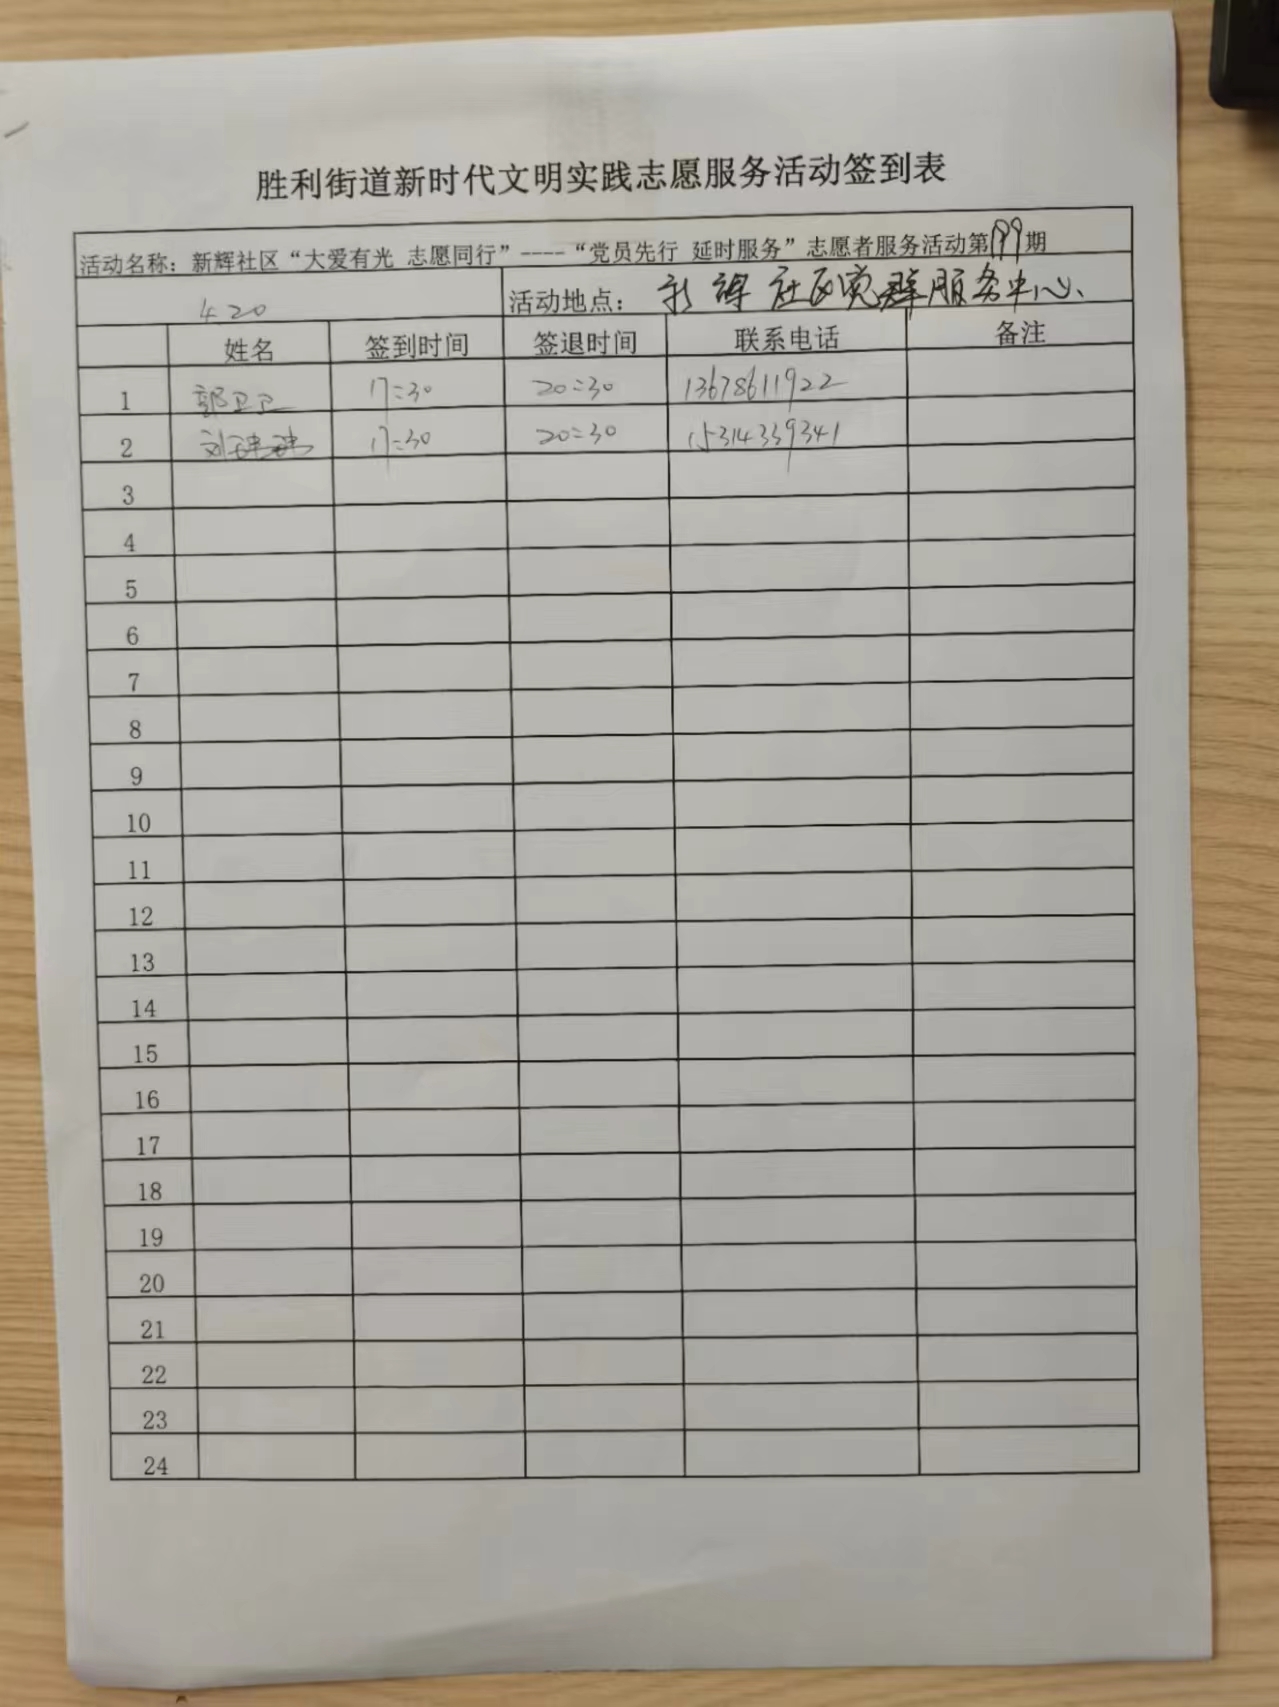 胜利街道新时代文明实践志愿服务活动签到表
活动名称：新辉社区“大爱有光 志愿同行”----“党员先行 延时服务”志愿者服务活动第199期
4.20 活动地点：新辉社区党群服务中心
姓名 签到时间 签退时间 联系电话 备注
1 郭卫卫 17:30 20:30 13678611922
2 刘 17:30 20:30 15314339341
3
4
5
6
7
8
9
10
11
12
13
14
15
16
17
18
19
20
21
22
23
24